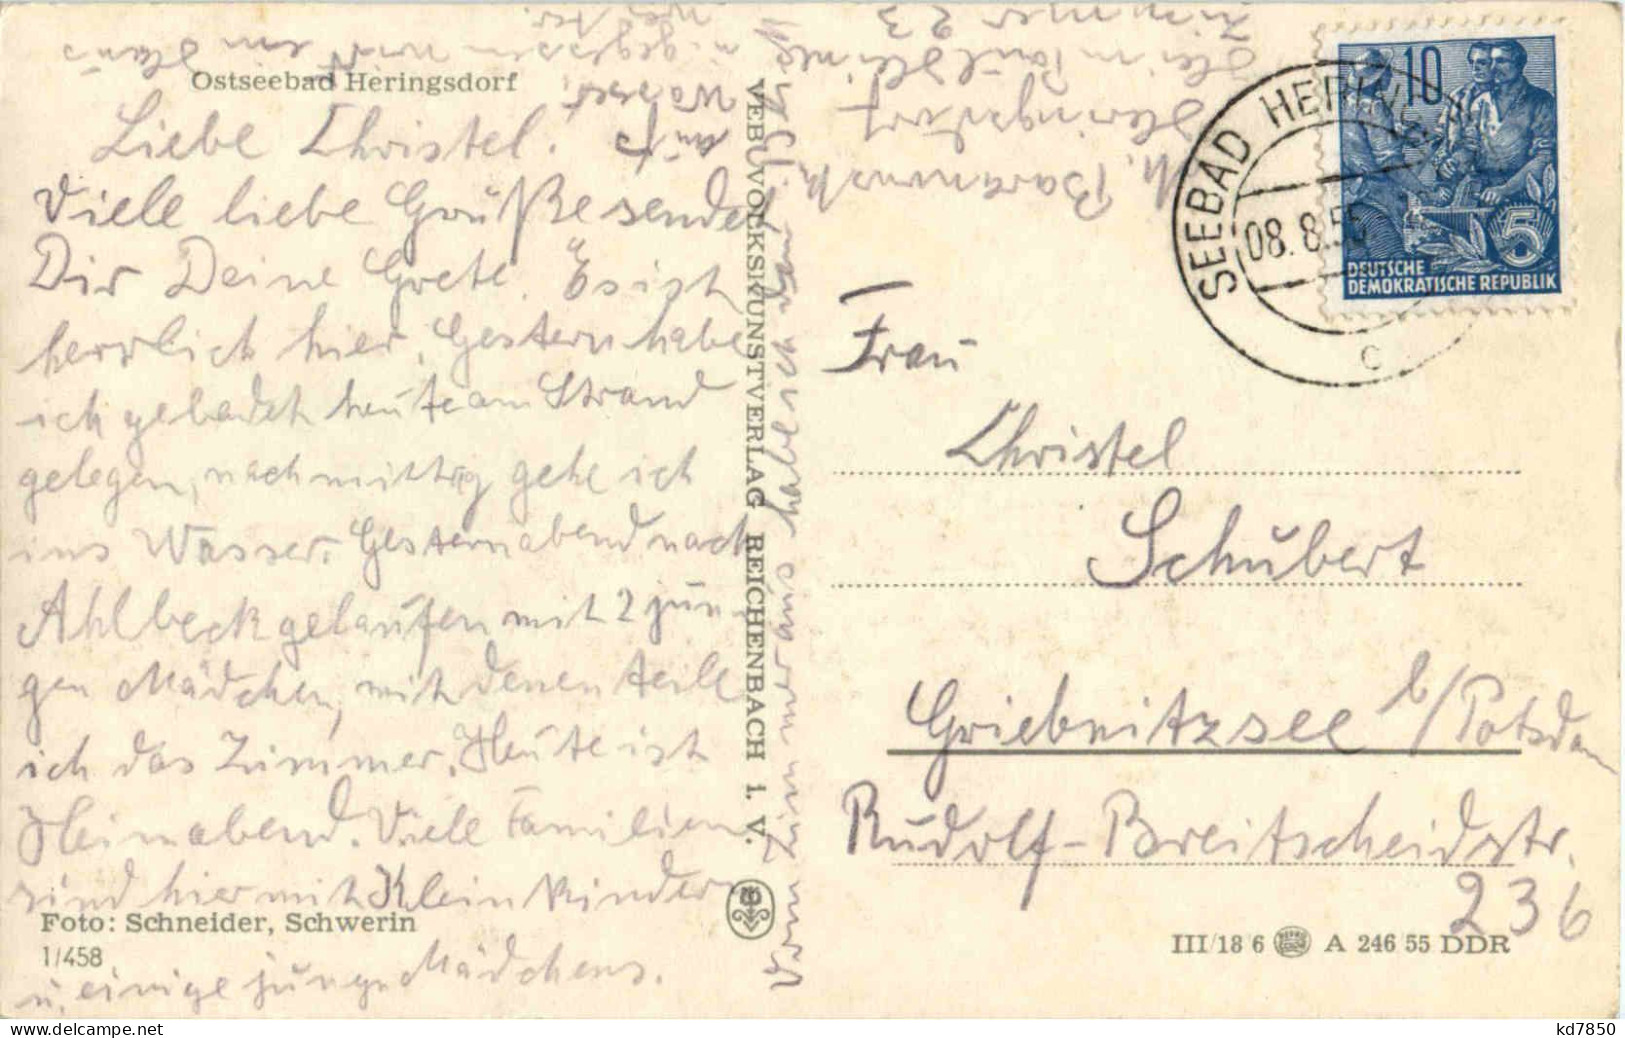 Ostseebad Heringsdorf
Liebe Christel.
Viele liebe Grüße sendet
Dir Deine Grete. Es ist
herrlich hier. Gestern habe
ich gebadet heute am Strand
gelegen, nachmittag gehe ich
ins Wasser. Gestern abend nach
Ahlbeck gelaufen mit 2 jun
gen Mädchen, mit denen teile
ich das Zimmer. Heute ist
Heimabend. Viele Familien
sind hier mit Kleinkinder
u. einige junge Mädchens.
Foto: Schneider, Schwerin
1/458
VEB VOLKSKUNSTVERLAG REICHENBACH i. V.
ins Wasser
u. gegessen wird im Haus
weiter.
M.
Heringsdorf
Heim Paul
Zimmer 23
SEEBAD HERINGSDORF
08. 8. 55
c
10
5
DEUTSCHE
DEMOKRATISCHE REPUBLIK
Frau
Christel
Schubert
Griebnitzsee b/Potsdam
Rudolf-Breitscheidstr.
236
III/18 6 A 246/55 DDR
kd7850